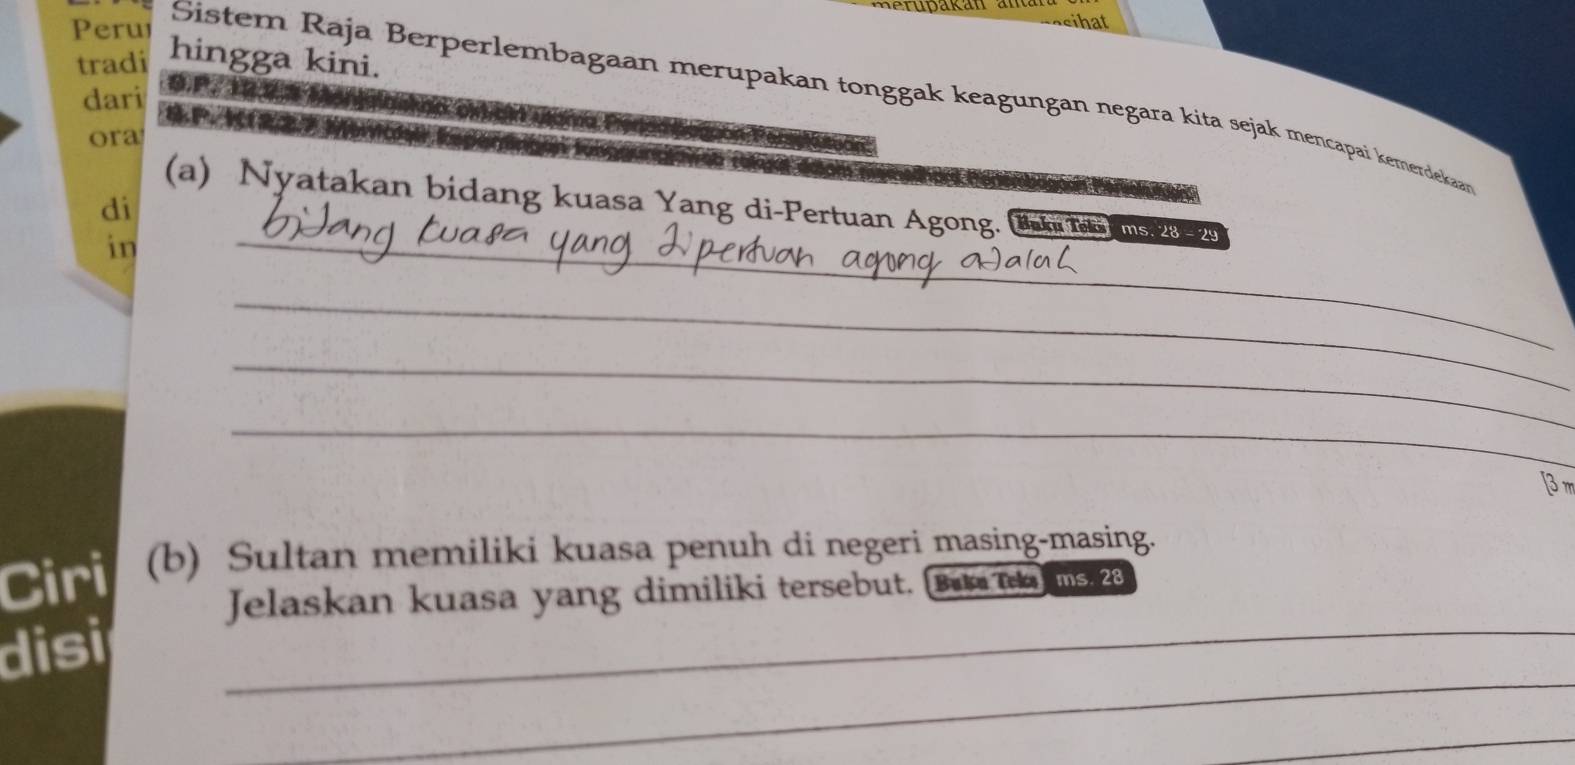 merupakan
Peru
tradi
dari
ora
di
in
Sistem Raja Berperlembagaan merupakan tonggak keagungan negara kita sejak mencapai kemerdekaan
hingga kini.
(a) Nyatakan bidang kuasa Yang di-Pertuan Agong. Buku Teks ms. 28 - 29
bidang kuasa yang dipertuan agong adalah
[3 m
(b) Sultan memiliki kuasa penuh di negeri masing-masing.
Jelaskan kuasa yang dimiliki tersebut. Buku Teks ms. 28
Ciri
disi